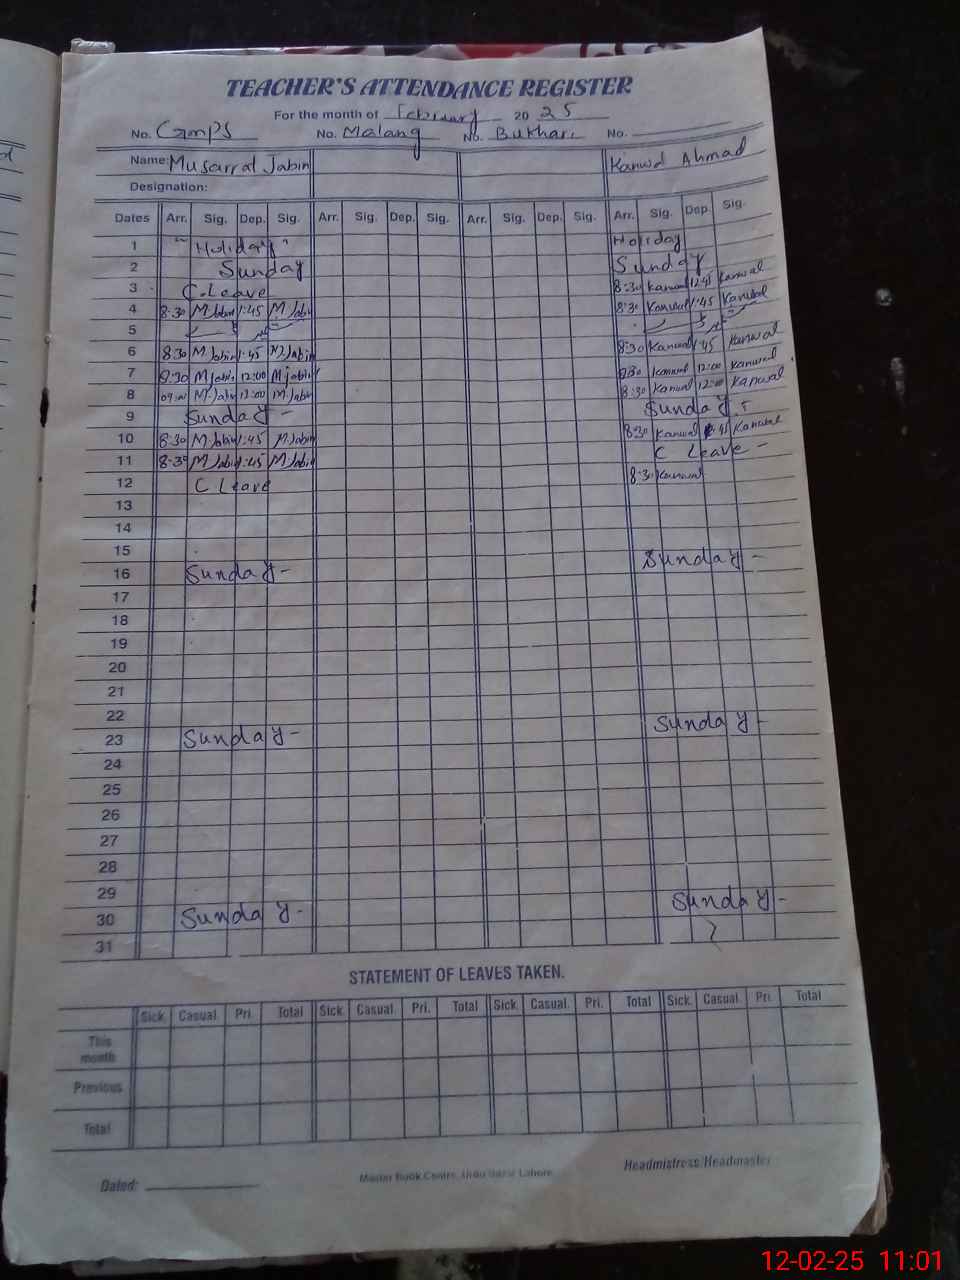 TEACHER'S ATTENDANCE REGISTER
For the month of February 2025
No. GMPS No. Malang No. Bukhari No.
Name: Musarrat Jabin Kanwal Ahmad
Designation:
Dates Arr. Sig. Dep. Sig. Arr. Sig. Dep. Sig. Arr. Sig. Dep. Sig. Arr. Sig. Dep. Sig.
1 " Holiday " Holiday
2 Sunday Sunday
3 C.Leave 8:30 Kanwal 12:45 Kanwal
4 8:30 M Jabin 1:45 M Jabin 8:30 Kanwal 1:45 Kanwal
5
6 8:30 M Jabin 1:45 M Jabin 8:30 Kanwal 1:45 Kanwal
7 8:30 M Jabin 12:00 M Jabin 8:30 Kanwal 12:00 Kanwal
8 M. Jabin 12:00 M. Jabin 8:30 Kanwal 12:00 Kanwal
9 Sunday - Sunday
10 8:30 M Jabin 1:45 M. Jabin 8:30 Kanwal 1:45 Kanwal
11 8:30 M Jabin 1:45 M Jabin C Leave -
12 C Leave 8:30 Kanwal
13
14
15
16 Sunday - Sunday -
17
18
19
20
21
22
23 Sunday - Sunday -
24
25
26
27
28
29
30 Sunday - Sunday -
31
STATEMENT OF LEAVES TAKEN.
Sick. Casual. Pri. Total Sick. Casual. Pri. Total Sick. Casual. Pri. Total Sick. Casual. Pri. Total
This month
Previous
Total
Dated: Master Book Centre, Urdu Bazar Lahore. Headmistress/Headmaster
12-02-25 11:01